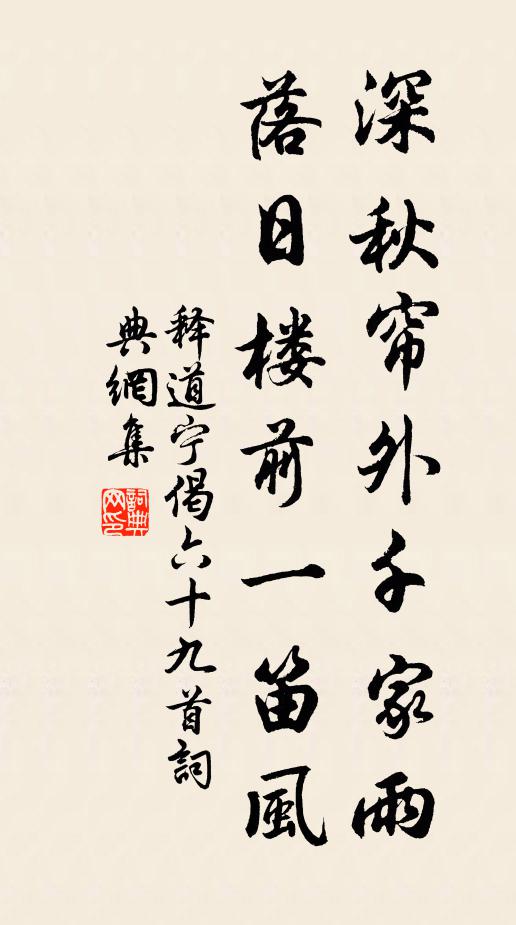 深秋帘外千家雨
落日楼前一笛風
释道宁偈六十九首詞
典網集
詞典
网印